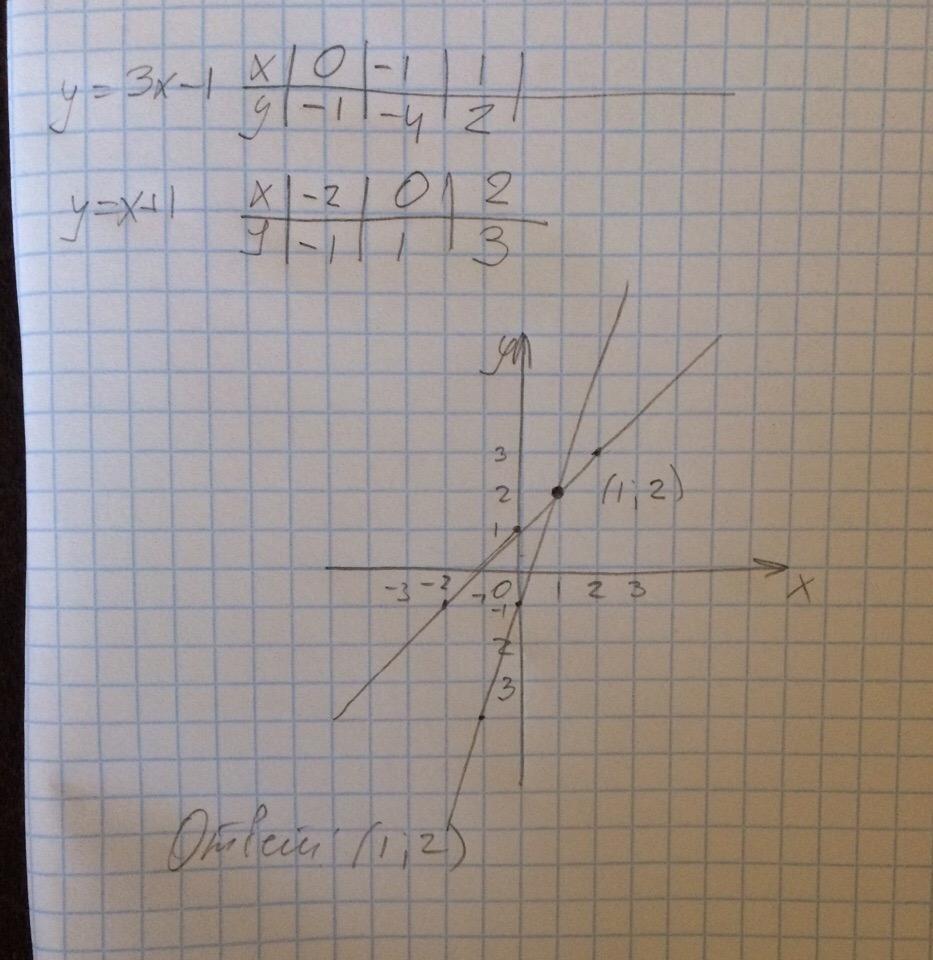 y = 3x-1 x | 0 | -1 | 1 |
y | -1 | -4 | 2 |
y=x+1 x | -2 | 0 | 2
y | -1 | 1 | 3
y
3
2 (1; 2)
1
-3 -2 -1 0 1 2 3 x
-1
2
3
Ответ: (1; 2)